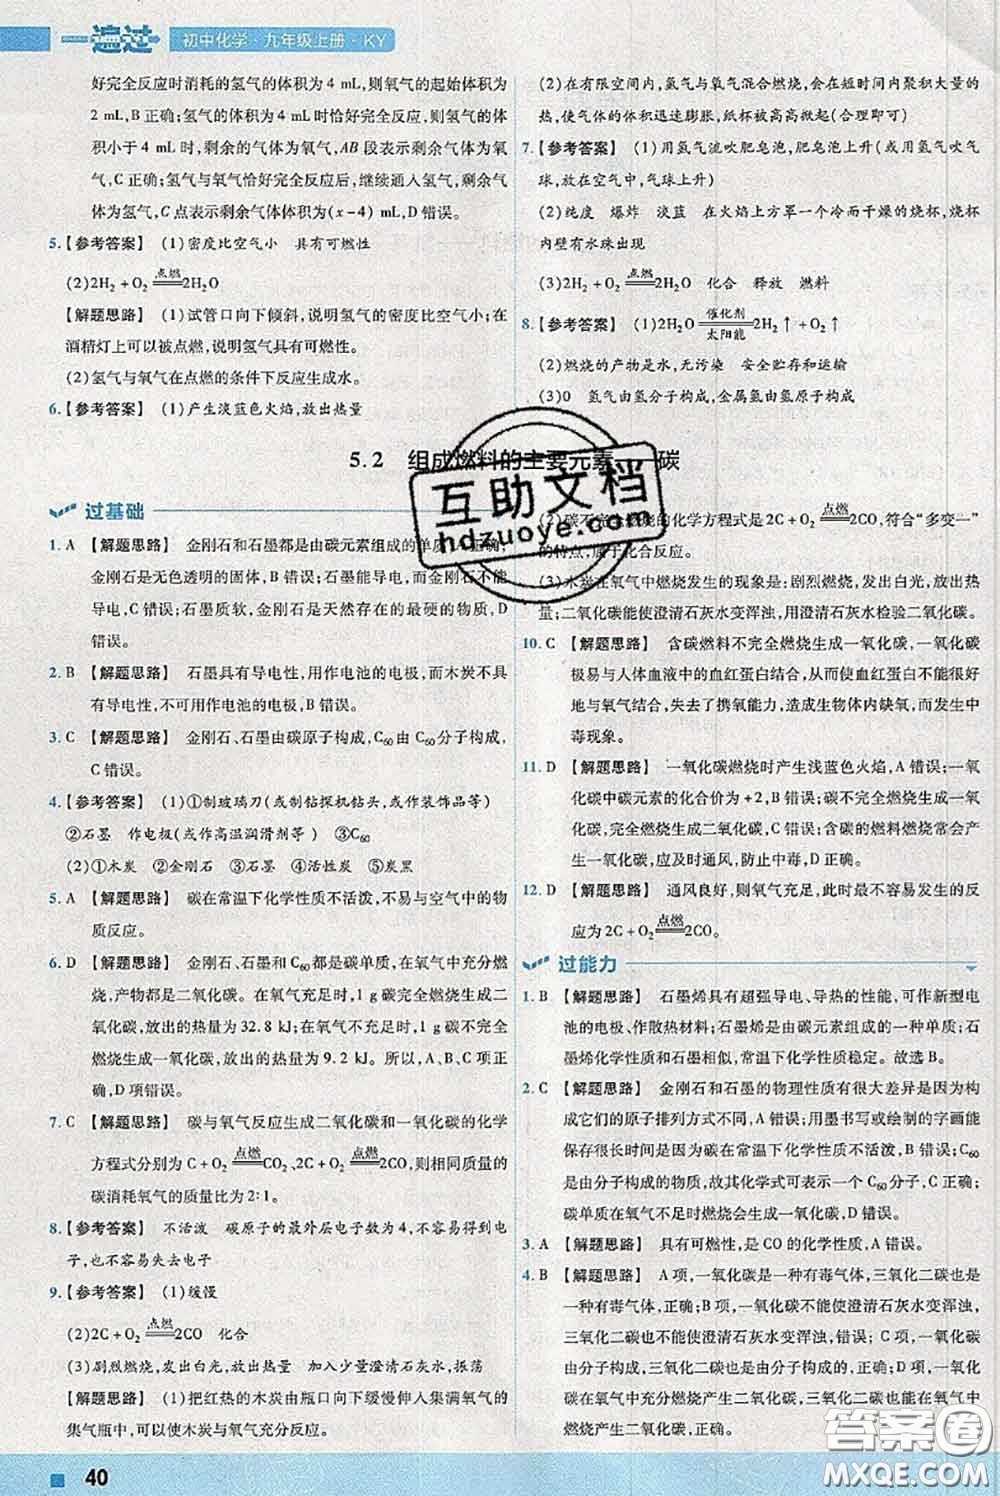 一遍过 初中化学·九年级上册·KY
好完全反应时消耗的氢气的体积为4 mL,则氧气的起始体积为
2 mL,B正确;氢气的体积为4 mL时恰好完全反应,则氢气的体
积小于4 mL时,剩余的气体为氧气,AB段表示剩余气体为氧
气,C正确;氢气与氧气恰好完全反应后,继续通入氢气,剩余气
体为氢气,C点表示剩余气体体积为(x-4) mL,D错误。
5.【参考答案】 (1)密度比空气小 具有可燃性
(2)2H₂+O₂ 点燃 2H₂O
【解题思路】 (1)试管口向下倾斜,说明氢气的密度比空气小;在
酒精灯上可以被点燃,说明氢气具有可燃性。
(2)氢气与氧气在点燃的条件下反应生成水。
6.【参考答案】 (1)产生淡蓝色火焰,放出热量
(2)在有限空间内,氢气与氧气混合燃烧,会在短时间内聚积大量的
热,使气体的体积迅速膨胀,纸杯被高高掀起(合理即可)
7.【参考答案】 (1)用氢气流吹肥皂泡,肥皂泡上升(或用氢气吹气
球,放在空气中,气球上升)
(2)纯度 爆炸 淡蓝 在火焰上方罩一个冷而干燥的烧杯,烧杯内
壁有水珠出现
(3)2H₂+O₂ 点燃 2H₂O 化合 释放 燃料
8.【参考答案】 (1)2H₂O 催化剂 太阳能 2H₂↑+O₂↑
(2)燃烧的产物是水,无污染 安全贮存和运输
(3)0 氢气由氢分子构成,金属氢由氢原子构成
5.2 组成燃料的主要元素 碳
过基础
1. A 【解题思路】 金刚石和石墨都是由碳元素组成的单质,A正确;
金刚石是无色透明的固体,B错误;石墨能导电,而金刚石不能
导电,C错误;石墨质软,金刚石是天然存在的最硬的物质,D
错误。
2. B 【解题思路】 石墨具有导电性,用作电池的电极,而木炭不具
有导电性,不可用作电池的电极,B错误。
3. C 【解题思路】 金刚石、石墨由碳原子构成,C₆₀由C₆₀分子构成,
C错误。
4.【参考答案】 (1)①制玻璃刀(或制钻探机钻头,或作装饰品等)
②石墨 作电极(或作高温润滑剂等) ③C₆₀
(2)①木炭 ②金刚石 ③石墨 ④活性炭 ⑤炭黑
5. A 【解题思路】 碳在常温下化学性质不活泼,不易与空气中的物
质反应。
6. D 【解题思路】 金刚石、石墨和C₆₀都是碳单质,在氧气中充分燃
烧,产物都是二氧化碳。在氧气充足时,1 g碳完全燃烧生成二
氧化碳,放出的热量为32.8 kJ;在氧气不充足时,1 g碳不完全
燃烧生成一氧化碳,放出的热量为9.2 kJ。所以,A、B、C项正
确,D项错误。
7. C 【解题思路】 碳与氧气反应生成二氧化碳和一氧化碳的化学
方程式分别为C+O₂ 点燃 CO₂、2C+O₂ 点燃 2CO,则相同质量的
碳消耗氧气的质量比为2:1。
8.【参考答案】 不活泼 碳原子的最外层电子数为4,不容易得到电
子,也不容易失去电子
9.【参考答案】 (1)缓慢
(2)2C+O₂ 点燃 2CO 化合
(3)剧烈燃烧,发出白光,放出热量 加入少量澄清石灰水,振荡
【解题思路】 (1)把红热的木炭由瓶口向下缓慢伸入集满氧气的
集气瓶中,可以使木炭与氧气充分反应。
(2)碳不完全燃烧的化学方程式是2C+O₂ 点燃 2CO,符合“多变一”
的特点,属于化合反应。
(3)木炭在氧气中燃烧发生的现象是:剧烈燃烧,发出白光,放出热
量;二氧化碳能使澄清石灰水变浑浊,用澄清石灰水检验二氧化碳。
10. C 【解题思路】 含碳燃料不完全燃烧生成一氧化碳,一氧化碳
极易与人体血液中的血红蛋白结合,从而使血红蛋白不能很好
地与氧气结合,失去了携氧能力,造成生物体内缺氧,而发生中
毒现象。
11. D 【解题思路】 一氧化碳燃烧时产生浅蓝色火焰,A错误;一氧
化碳中碳元素的化合价为+2,B错误;碳不完全燃烧生成一氧
化碳,完全燃烧生成二氧化碳,C错误;含碳的燃料燃烧常会产
生一氧化碳,应及时通风,防止中毒,D正确。
12. D 【解题思路】 通风良好,则氧气充足,此时最不容易发生的反
应为2C+O₂ 点燃 2CO。
过能力
1. B 【解题思路】 石墨烯具有超强导电、导热的性能,可作新型电
池的电极、作散热材料;石墨烯是由碳元素组成的一种单质;石
墨烯化学性质和石墨相似,常温下化学性质稳定。故选B。
2. C 【解题思路】 金刚石和石墨的物理性质有很大差异是因为构
成它们的原子排列方式不同,A错误;用墨书写或绘制的字画能
保存很长时间是因为碳在常温下化学性质不活泼,B错误;C₆₀
是由分子构成的物质,故其化学式可表示一个C₆₀分子,C正确;
碳单质在氧气不足时燃烧会生成一氧化碳,D错误。
3. A 【解题思路】 具有可燃性,是CO的化学性质,A错误。
4. B 【解题思路】 A项,一氧化碳是一种有毒气体,三氧化二碳也
是一种有毒气体,正确;B项,一氧化碳不能使澄清石灰水变浑浊,
三氧化二碳也不能使澄清石灰水变浑浊,错误;C项,一氧化碳
由分子构成,三氧化二碳也由分子构成,正确;D项,一氧化碳能
在氧气中充分燃烧产生二氧化碳,三氧化二碳也能在氧气中
燃烧产生二氧化碳,正确。
互助文档
hdzuoye.com
答案圈
MXQE.COM
40